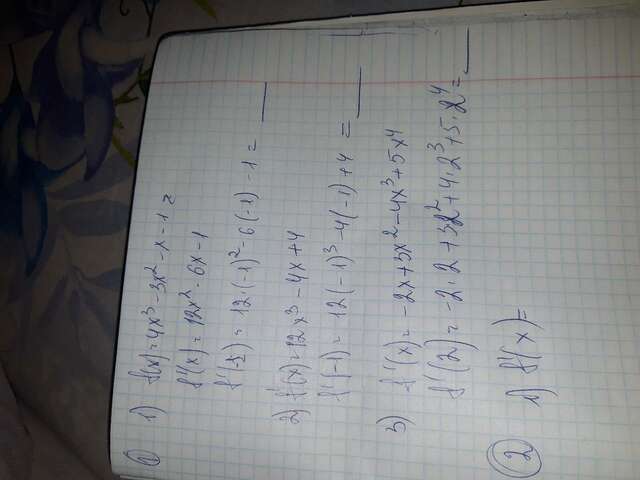 ① 1) f(x)=4x³-3x²-x-1=
f'(x)=12x²-6x-1
f'(-1)=12·(-1)²-6(-1)-1=___
2) f'(x)=12x³-4x+4
f'(-1)=12(-1)³-4(-1)+4=___
3) f'(x)=-2x+3x²-4x³+5x⁴
f'(2)=-2·2+3·2²+4·2³+5·2⁴=___
② 1) f'(x)=